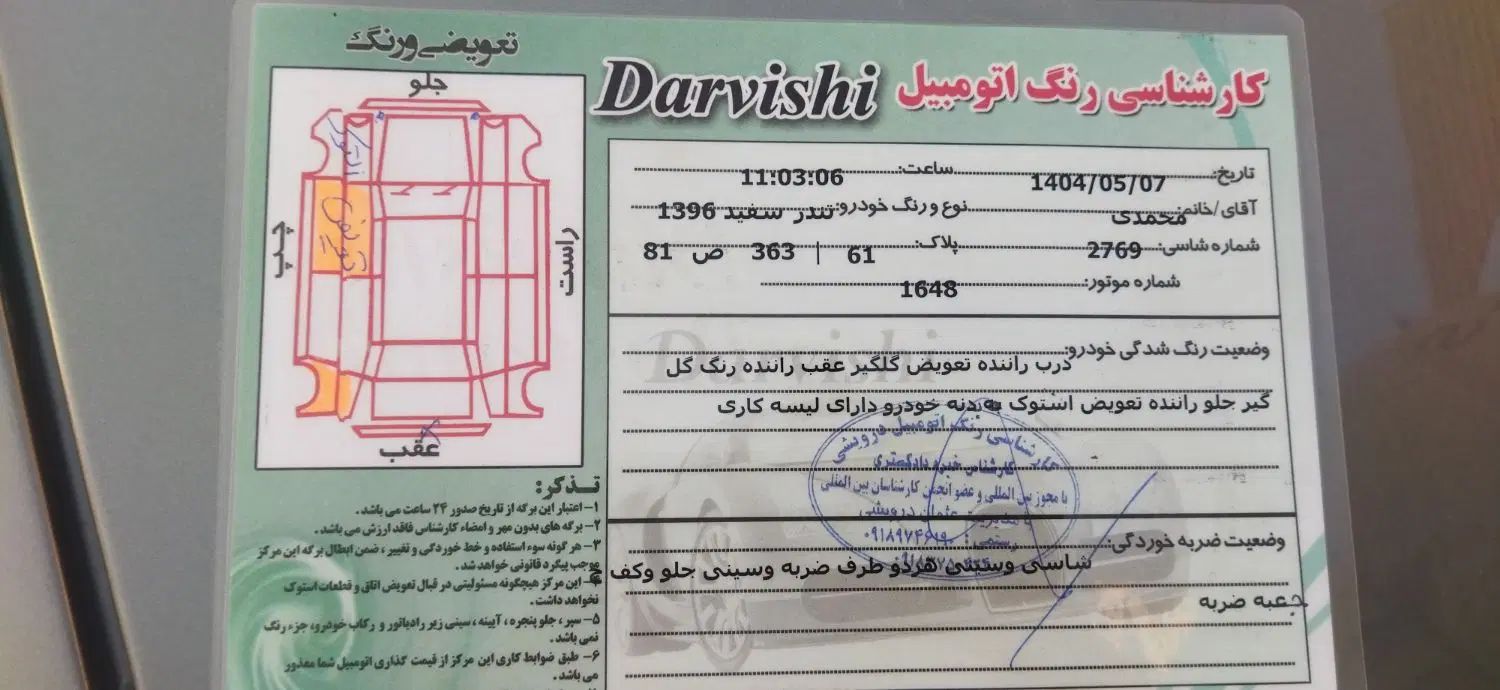 تعویضی و رنگ
جلو
راست
چپ
عقب
تعویض
کارشناسی رنگ اتومبیل Darvishi
تاریخ: 1404/05/07 ساعت: 11:03:06
آقای/خانم: محمدی نوع و رنگ خودرو: تندر سفید 1396
شماره شاسی: 2769 پلاک: 61 | 363 ص 81
شماره موتور: 1648
وضعیت رنگ شدگی خودرو:
درب راننده تعویض گلگیر عقب راننده رنگ گل
گیر جلو راننده تعویض استوک بدنه خودرو دارای لیسه کاری
کارشناسی رنگ اتومبیل درویشی
کارشناس خبره دادگستری
با مجوز بین المللی و عضو انجمن کارشناسان بین المللی
وضعیت ضربه خوردگی:
شاسی وسینی هردو طرف ضربه وسینی جلو وکف ج
جعبه ضربه
تـذکر:
۱- اعتبار این برگه از تاریخ صدور ۲۴ ساعت می باشد.
۲- برگه های بدون مهر و امضاء کارشناس فاقد ارزش می باشد.
۳- هر گونه سوء استفاده و خط خوردگی و تغییر، ضمن ابطال برگه این مرکز
موجب پیگرد قانونی خواهد شد.
۴- این مرکز هیچگونه مسئولیتی در قبال تعویض اتاق و قطعات استوک
نخواهد داشت.
۵- سپر، جلو پنجره، آیینه، سینی زیر رادیاتور و رکاب خودرو، جزء رنگ
نمی باشد.
۶- طبق ضوابط کاری این مرکز از قیمت گذاری اتومبیل شما معذور
می باشد.